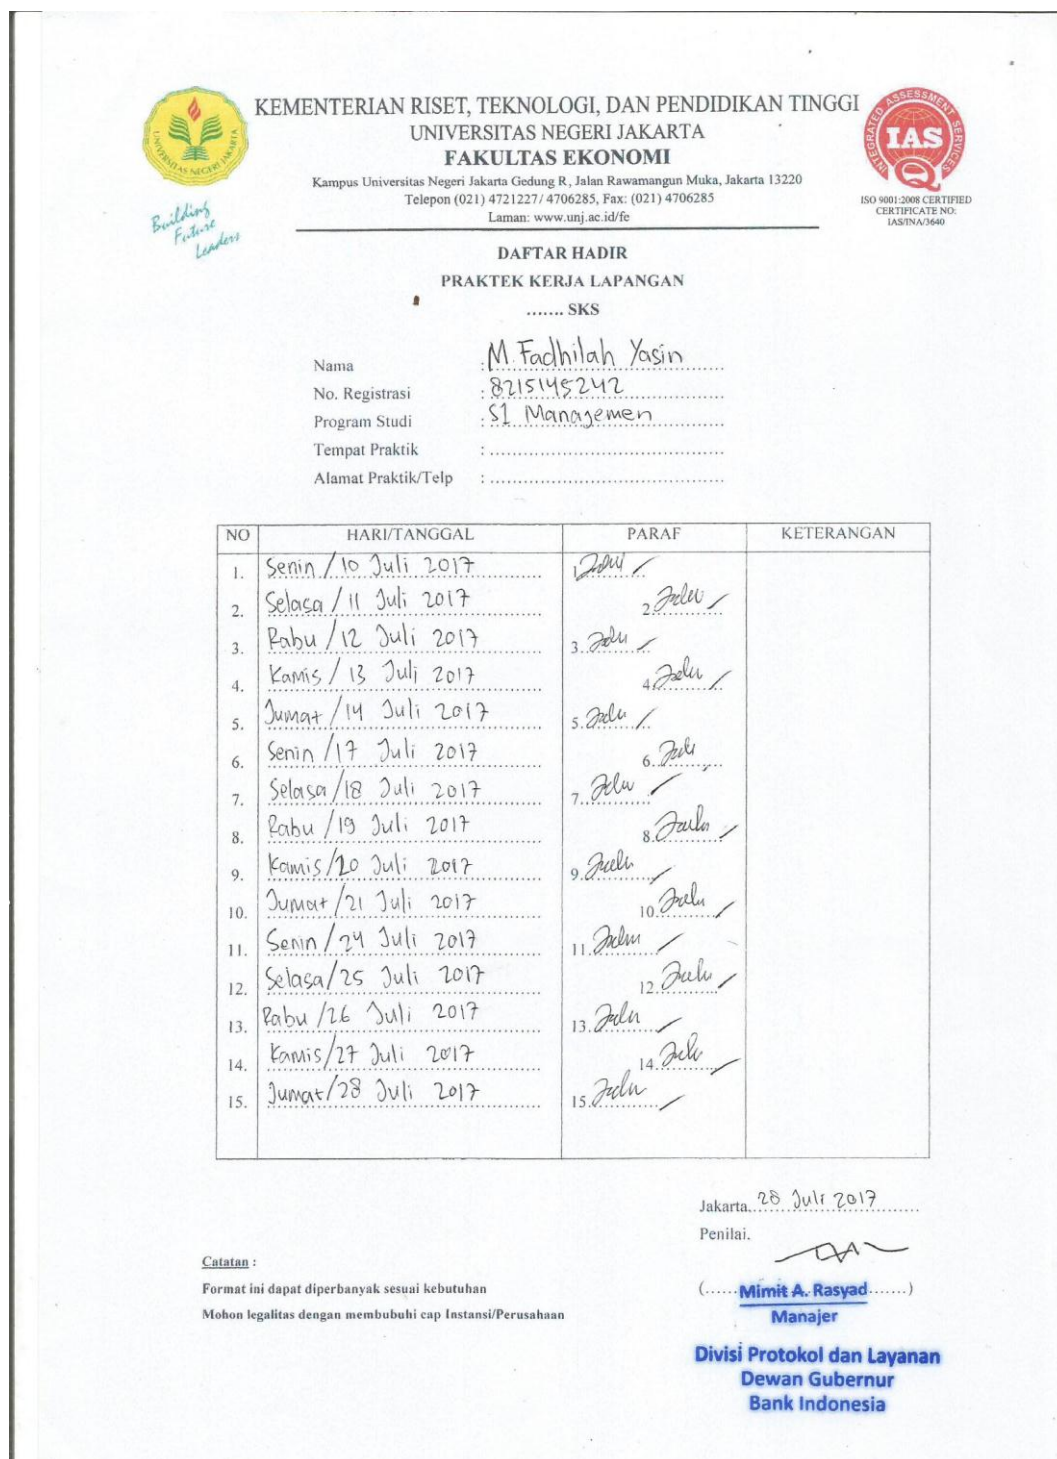 KEMENTERIAN RISET, TEKNOLOGI, DAN PENDIDIKAN TINGGI
UNIVERSITAS NEGERI JAKARTA
FAKULTAS EKONOMI
Kampus Universitas Negeri Jakarta Gedung R, Jalan Rawamangun Muka, Jakarta 13220
Telepon (021) 4721227/ 4706285, Fax: (021) 4706285
Laman: www.unj.ac.id/fe
UNIVERSITAS NEGERI JAKARTA
Building
Future
Leaders
INTEGRATED ASSESSMENT SERVICES
IAS
ISO 9001:2008 CERTIFIED
CERTIFICATE NO:
IAS/INA/3640
DAFTAR HADIR
PRAKTEK KERJA LAPANGAN
....... SKS
Nama : M. Fadhilah Yasin
No. Registrasi : 8215145242
Program Studi : S1 Manajemen
Tempat Praktik : ........................................
Alamat Praktik/Telp : ........................................
NO HARI/TANGGAL PARAF KETERANGAN
1. Senin / 10 Juli 2017 1.
2. Selasa / 11 Juli 2017 2.
3. Rabu / 12 Juli 2017 3.
4. Kamis / 13 Juli 2017 4.
5. Jumat / 14 Juli 2017 5.
6. Senin / 17 Juli 2017 6.
7. Selasa / 18 Juli 2017 7.
8. Rabu / 19 Juli 2017 8.
9. Kamis / 20 Juli 2017 9.
10. Jumat / 21 Juli 2017 10.
11. Senin / 24 Juli 2017 11.
12. Selasa / 25 Juli 2017 12.
13. Rabu / 26 Juli 2017 13.
14. Kamis / 27 Juli 2017 14.
15. Jumat / 28 Juli 2017 15.
Jakarta, 28 Juli 2017
Penilai,
(...... Mimit A. Rasyad .......)
Manajer
Divisi Protokol dan Layanan
Dewan Gubernur
Bank Indonesia
Catatan :
Format ini dapat diperbanyak sesuai kebutuhan
Mohon legalitas dengan membubuhi cap Instansi/Perusahaan